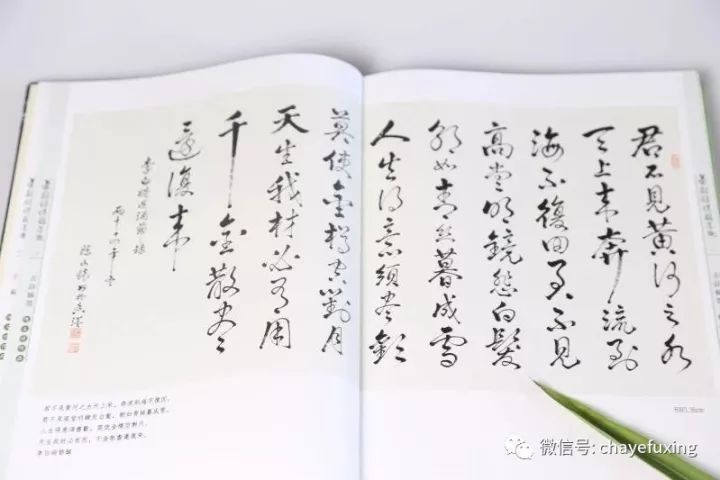 君不見黄河之水
天上来奔流到
海不復回君不見
高堂明鏡悲白髮
朝如青丝暮成雪
人生得意須尽歡
莫使金樽空對月
天生我材必有用
千金散尽
還復来
李白將進酒節録
君不見黄河之水天上來，奔流到海不復回。
君不見高堂明鏡悲白髮，朝如青絲暮成雪。
人生得意須盡歡，莫使金樽空對月。
天生我材必有用，千金散盡還復來。
李白詩節録
微信号: chayefuxing